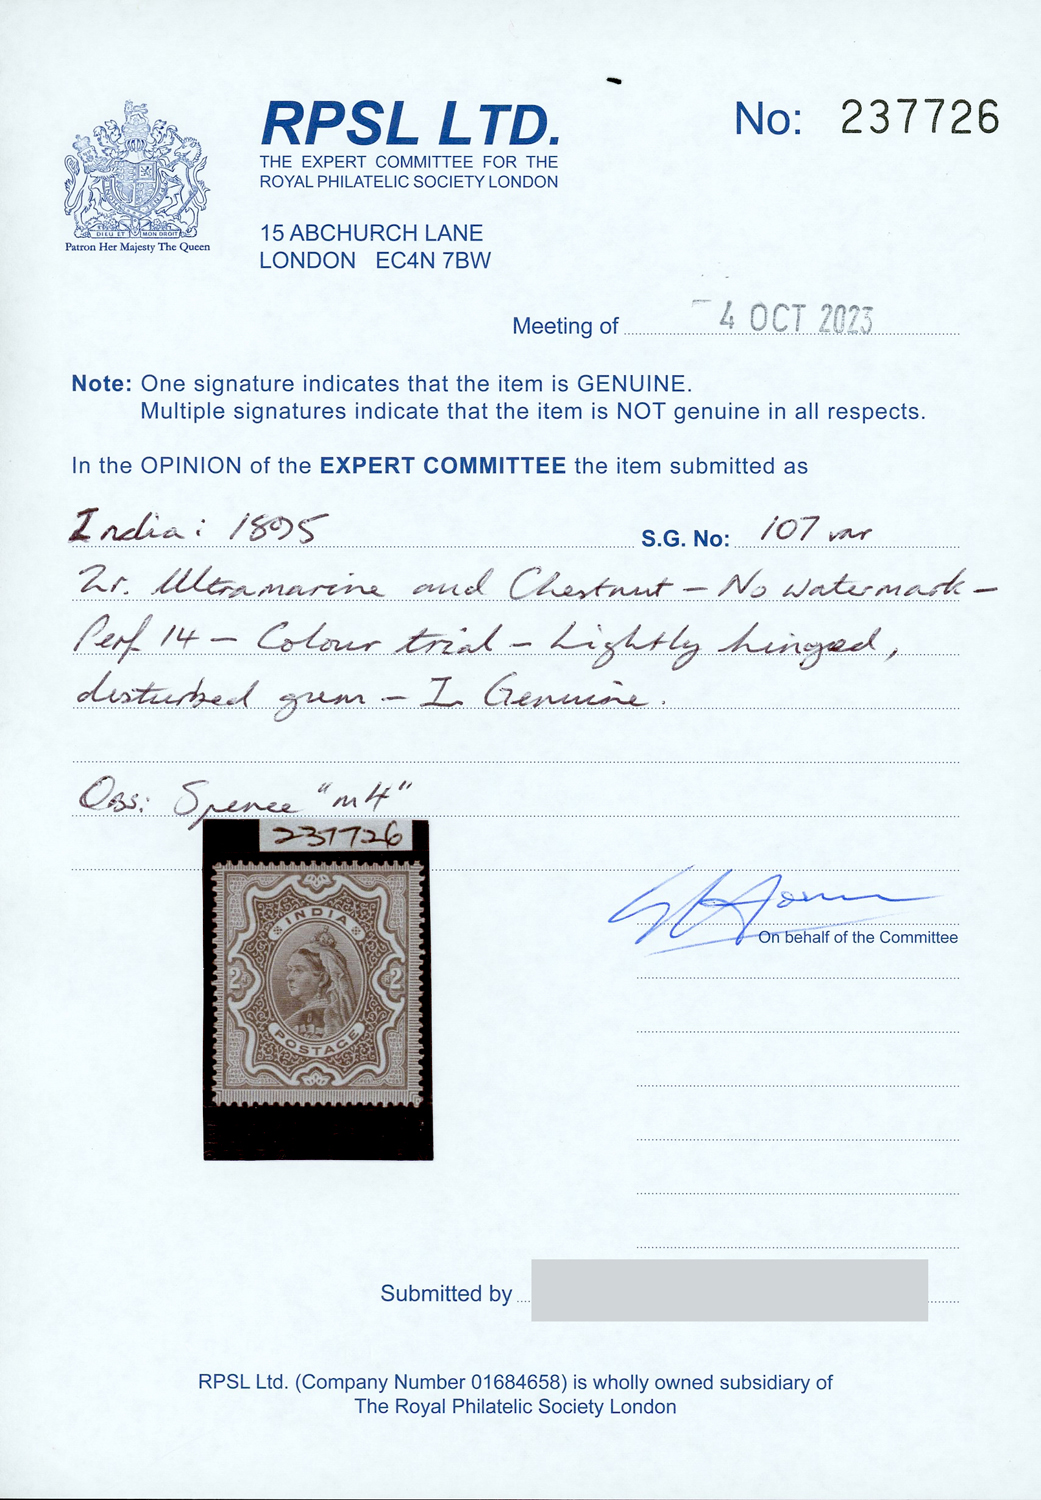 RPSL LTD.
THE EXPERT COMMITTEE FOR THE
ROYAL PHILATELIC SOCIETY LONDON
15 ABCHURCH LANE
LONDON EC4N 7BW
No: 237726
DIEU ET MON DROIT
Patron Her Majesty The Queen
Meeting of 4 OCT 2023
Note: One signature indicates that the item is GENUINE.
Multiple signatures indicate that the item is NOT genuine in all respects.
In the OPINION of the EXPERT COMMITTEE the item submitted as
India: 1895 S.G. No: 107 var
2r. Ultramarine and Chestnut – No watermark –
Perf 14 – Colour trial – Lightly hinged,
disturbed gum – Is Genuine.
Obs: Spence "m4"
237726
INDIA
2R 2R
POSTAGE
On behalf of the Committee
Submitted by
RPSL Ltd. (Company Number 01684658) is wholly owned subsidiary of
The Royal Philatelic Society London